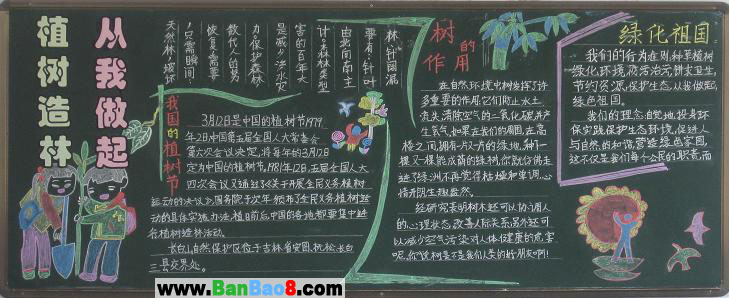 植树造林
从我做起
天然林,破坏
只需瞬间!
恢复需要
数代人的努
力,保护森林
是减少洪水灾
害的百年大
计,森林类型
由北向南主
要有:针叶
林、针阔混
我国的植树节
3月12日是中国的植树节1979
年2日中国第五届全国人大常委会
第六次会议决定,将每年的3月12日
定为中国的植树节,1981年12日,五届全国人大
四次会议又通过了《关于开展全民义务植树
运动的决议》,国务院于次年颁布了全民义务植树运
动的具体实施办法,植日前后中国的各地都要集中进
行植树造林活动。
长白山自然保护区位于吉林省安图、抚松、长白
三县交界处。
树的作用
在自然环境中树发挥了许
多重要的作用,它们防止水土
流失,清除空气的二氧化碳并产
生氧气,如果在我们的周围,在高
楼之间,拥有一片片的绿地,种下一
棵又一棵能成荫的绿树,你就仿佛走
进了绿洲不再觉得枯燥和单调,心
情开朗生趣盎然。
经研究表明树木还可以协调人
的心理状态,改善人际关系,另外还可
以减少空气污染对人体健康的危害
呢,你说树是不是我们人类的好朋友啊!
绿化祖国
我们的行为准则,种草植树
绿化环境,防治污染讲卫生,
节约资源,保护生态,从我做起,
绿色祖国。
我们的理念:自觉地投身环
保实践保护生态环境,促进人
与自然的和谐,营造绿色家园,
这不仅是我们每个公民的职责,而
www.BanBao8.com